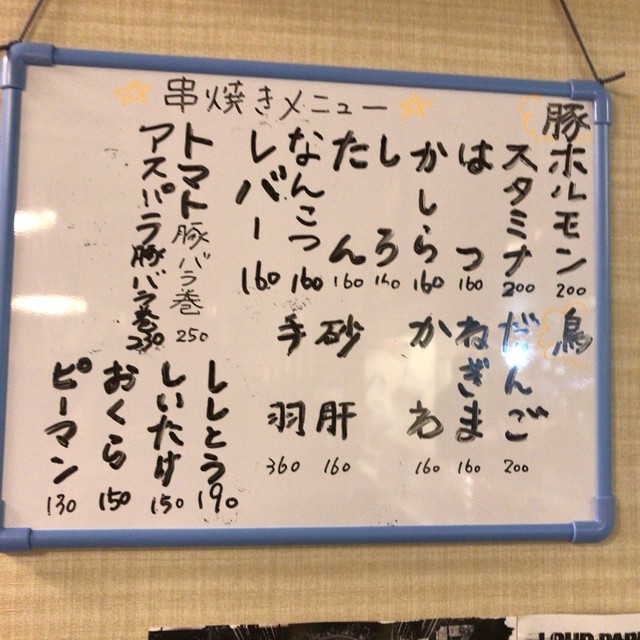 ☆串焼きメニュー☆
豚
ホルモン 200
スタミナ 200
はつ 160
かしら 160
しろ 160
たん 160
なんこつ 160
レバー 160
トマト豚バラ巻 250
アスパラ豚バラ巻 230
鳥
だんご 200
ねぎま 160
かわ 160
砂肝 160
手羽 360
ししとう 190
しいたけ 150
おくら 150
ピーマン 130